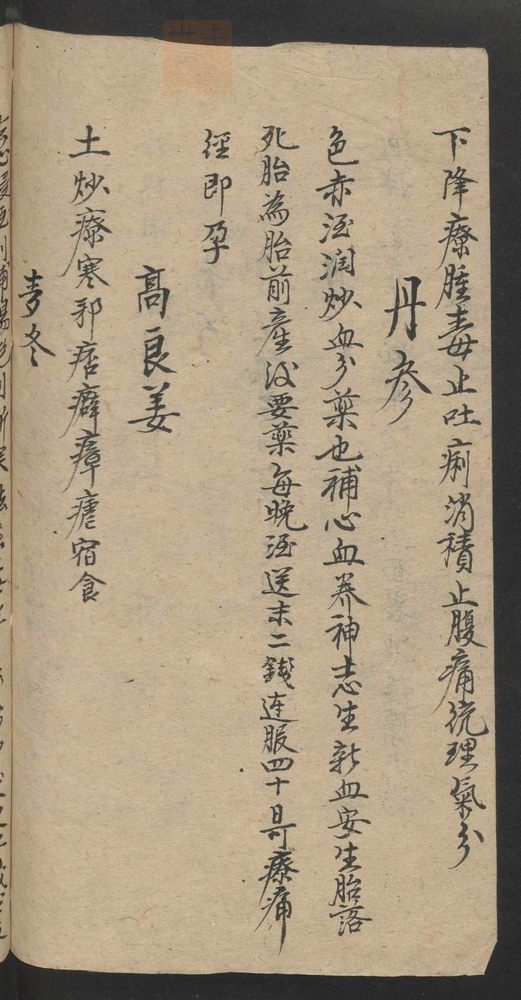 下降療腫毒止吐痢消積止腹痛統理氣分
丹參
色赤酒潤炒血分藥也補心血养神志生新血安生胎落
死胎為胎前產後要藥每晚酒送末二錢連服四十日可療痛
經即孕
高良姜
土炒療寒邪痞癖瘴瘧宿食
麦冬